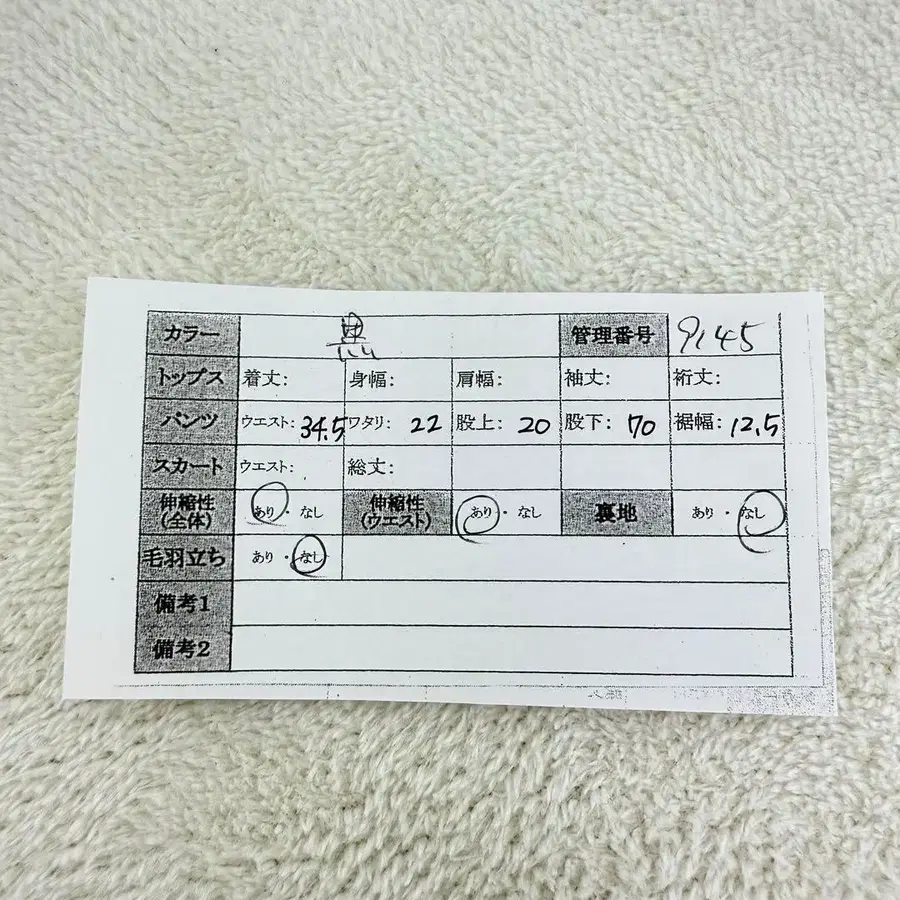 カラー 黒 管理番号 9145
トップス 着丈: 身幅: 肩幅: 袖丈: 裄丈:
パンツ ウエスト: 34.5 ワタリ: 22 股上: 20 股下: 70 裾幅: 12.5
スカート ウエスト: 総丈:
伸縮性(全体) あり・なし 伸縮性(ウエスト) あり・なし 裏地 あり・なし
毛羽立ち あり・なし
備考1
備考2